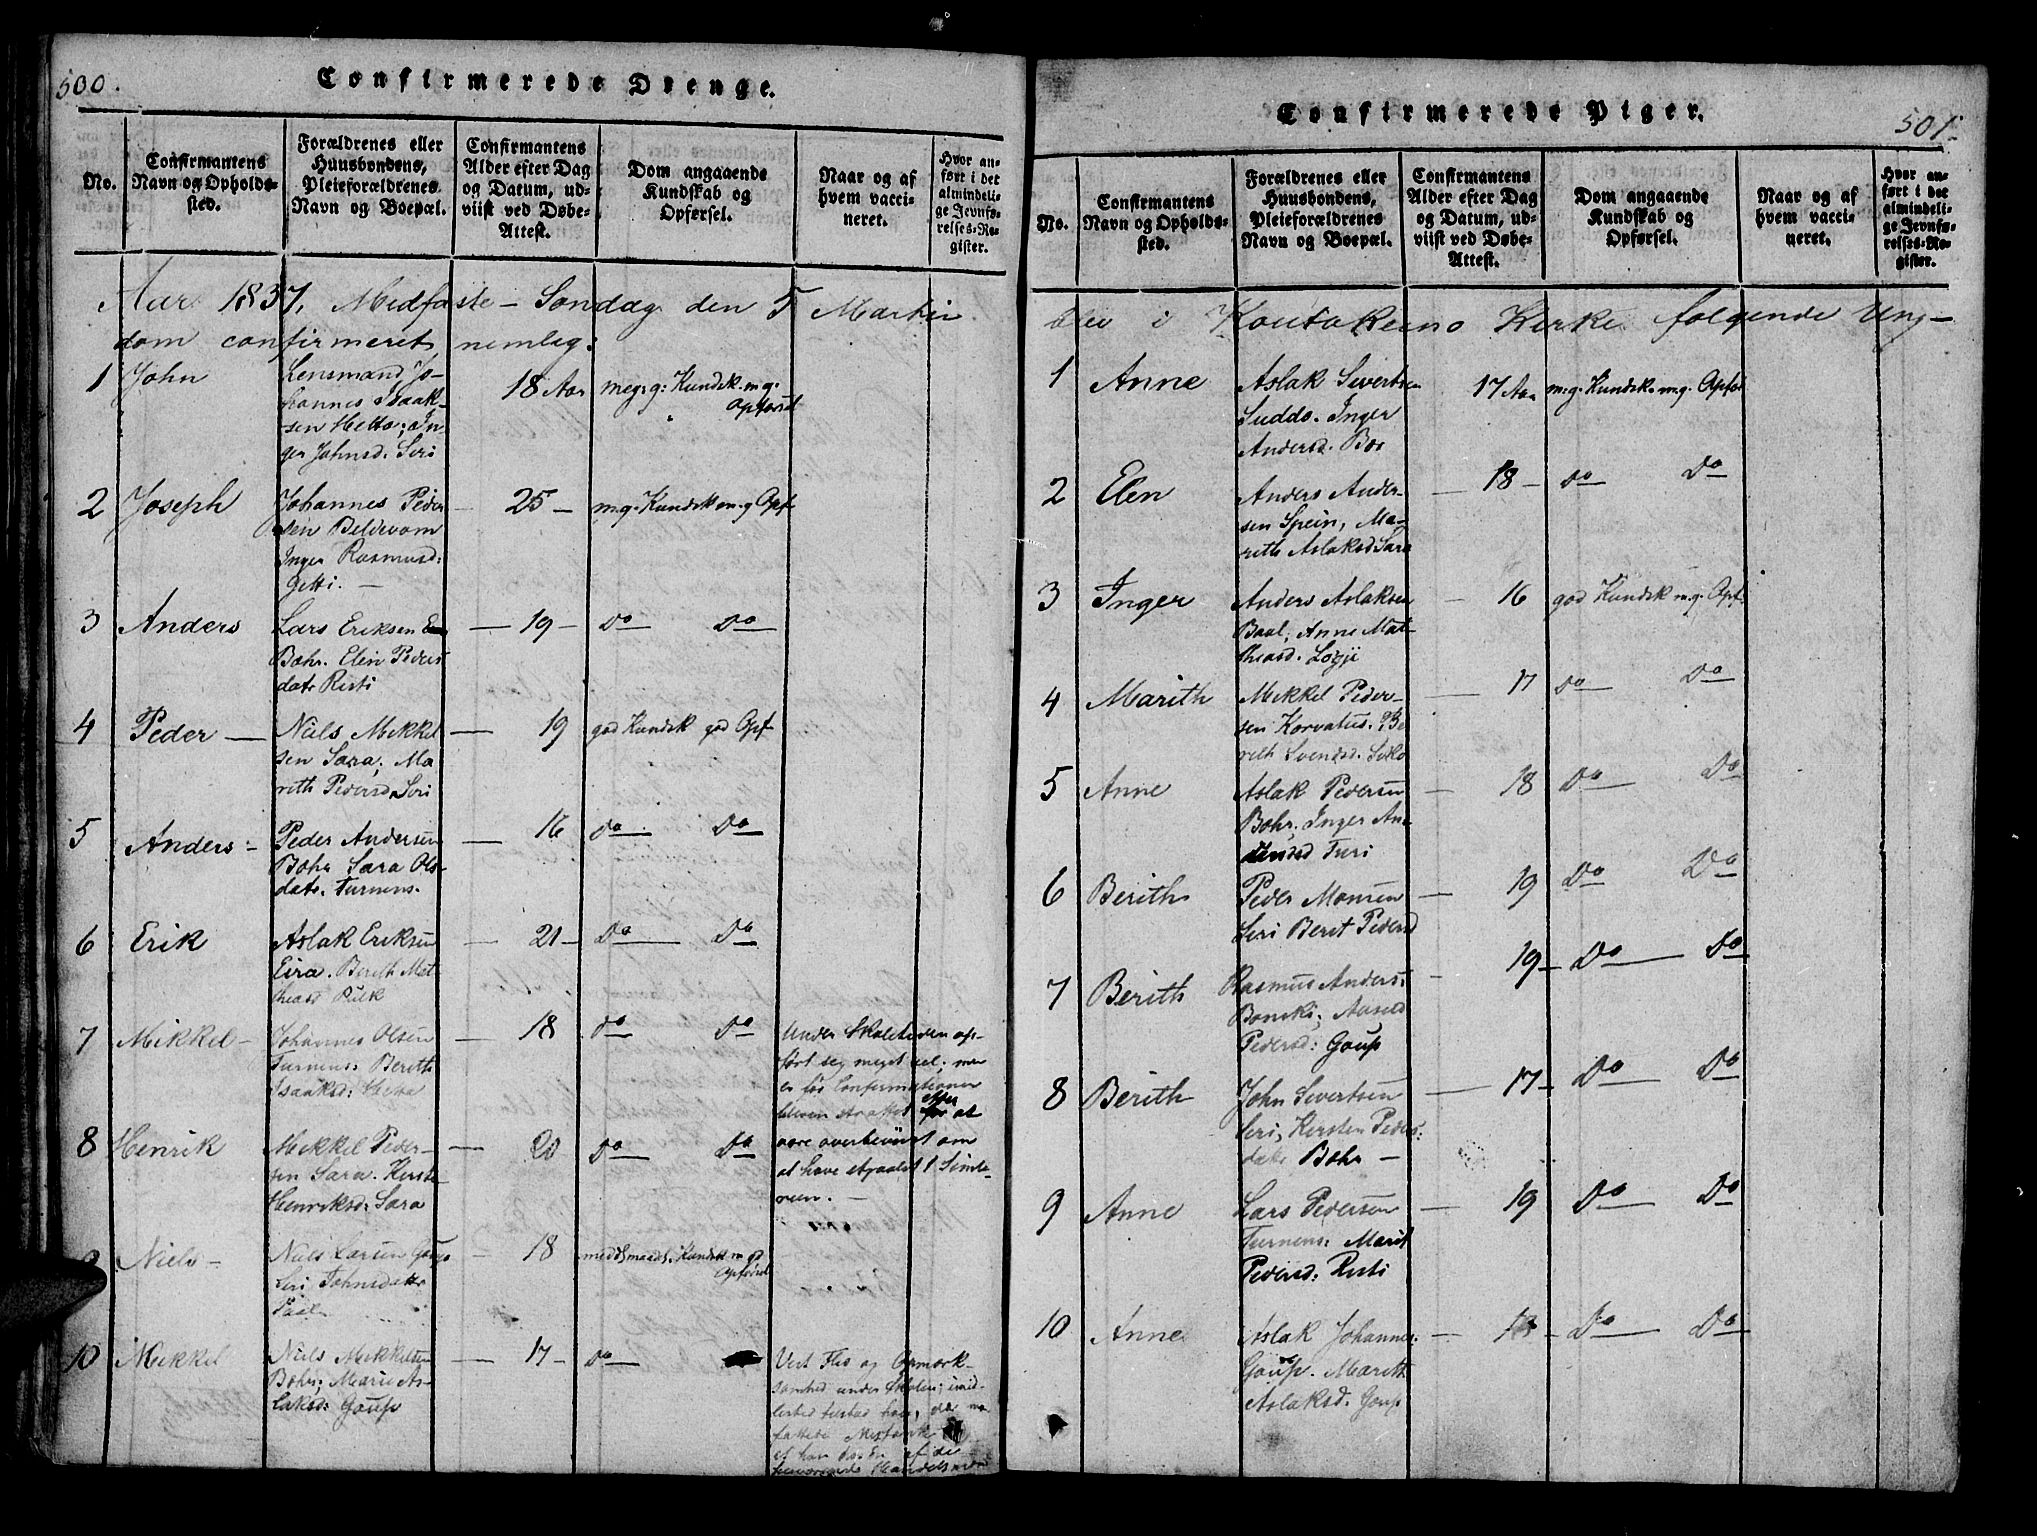 500.
Confirmerede Drenge.
No.
Confirmantens
Navn og Opholds-
sted.
Forældrenes eller
Huusbondens,
Pleieforældrenes
Navn og Boepæl.
Confirmantens
Alder efter Dag
og Datum, ud-
viist ved Døbe-
Attest.
Dom angaaende
Kundskab og
Opførsel.
Naar og af
hvem vacci-
neret.
Hvor an-
ført i det
almindeli-
ge Jevnfø-
relses-Re-
gister.
Aar 1837, Midfaste-Søndag den 5 Martii
dom confirmeret, nemlig:
1 John
Lensmand Jo-
hannes Isaak-
sen Hetta; In-
ger Johnsd. Siri
18 Aar
meg: g: Kundsk. m.g.
Opførsel
2 Joseph
Johannes Peder
sen Beldevom
Inger Rasmusd:
Getti. —
— 25 —
m.g. Kundsk m.g Opf.
3 Anders
Lars Eriksen
Bohr. Elen Peders
datr Risti
— 19 —
Do Do
4 Peder —
Niels Mikkel
sen Sara, Ma
reth Pedersd. Siri
— 19
god Kundsk god Opf
5 Anders -
Peder Andersen
Bohr Sara Ols-
datr. Turnens.
— 16
Do Do
6 Erik
Aslak Eriksen
Eira. Bereth Mat
heasd Pulk
— 21 —
Do Do
7 Mikkel -
Johannes Olsen
Turnens: Bereth
Isaaksd: Hetta
— 18
Do Do
Under Skoletiden op-
ført sig meget vel; men
er før Confirmationen
bleven straffet efter for at
være overbeviist om
at have stjaalet 1 Simle
reen. —
8 Henrik
Mikkel Peder-
sen Sara. Kirste
Henriksd: Sara
— 20
Do Do
9 Niels -
Niels Larsen Goup
Siri Johnsdatr
— 18
maads. Kundsk m g
Opførsel
10 Mikkel
Niels Mikkelsen
Bohr; Marie As-
laksd: Goup
— 17 —
Do
Vist Flid og Opmærk-
somhed under Skolen;
501.
Confirmerede Piger.
No.
Confirmantens
Navn og Opholds-
sted.
Forældrenes eller
Huusbondens,
Pleieforældrenes
Navn og Boepæl.
Confirmantens
Alder efter Dag
og Datum, ud-
viist ved Døbe-
Attest.
Dom angaaende
Kundskab og
Opførsel.
Naar og af
hvem vacci-
neret.
Hvor an-
ført i det
almindeli-
ge Jevnfø-
relses-Re-
gister.
blev i Koutokeino Kirke følgende Ung-
1 Anne
Aslak Sivertsen
Suddo. Inger
Andersd. Bær
17 Aar
m:g: Kundsk. m.g. Opfør
2 Elen
Anders Ander-
sen Spein, Ma-
reth Aslaksd Sara
— 18 —
Do Do
3 Inger
Anders Aslaksen
Baal, Anne Mat-
heasd. Logje
— 16
god Kundsk m.g. Opf.
4 Marith
Mikkel Peder-
sen Korvatus. Be
reth Svendsd.
— 17
Do Do
5 Anne
Aslak Pedersen
Bohr; Inger An-
dersd Turi
— 18
Do Do
6 Berith
Peder Monsen
Siri Beret Pedersd
— 19
Do Do
7 Berith
Rasmus Anders:
Banski;
Pedersd: Goup
— 19 —
Do Do
8 Berith
John Sivertsen
Siri, Kirsten Peders:
datr Bohr —
— 17 —
Do Do
9 Anne
Lars Pedersen
Turnens: Marit
Pedersd: Risti
— 19
Do Do
10 Anne
Aslak Johannes:
Goup. Mareth
Aslaksd: Goup
Do Do